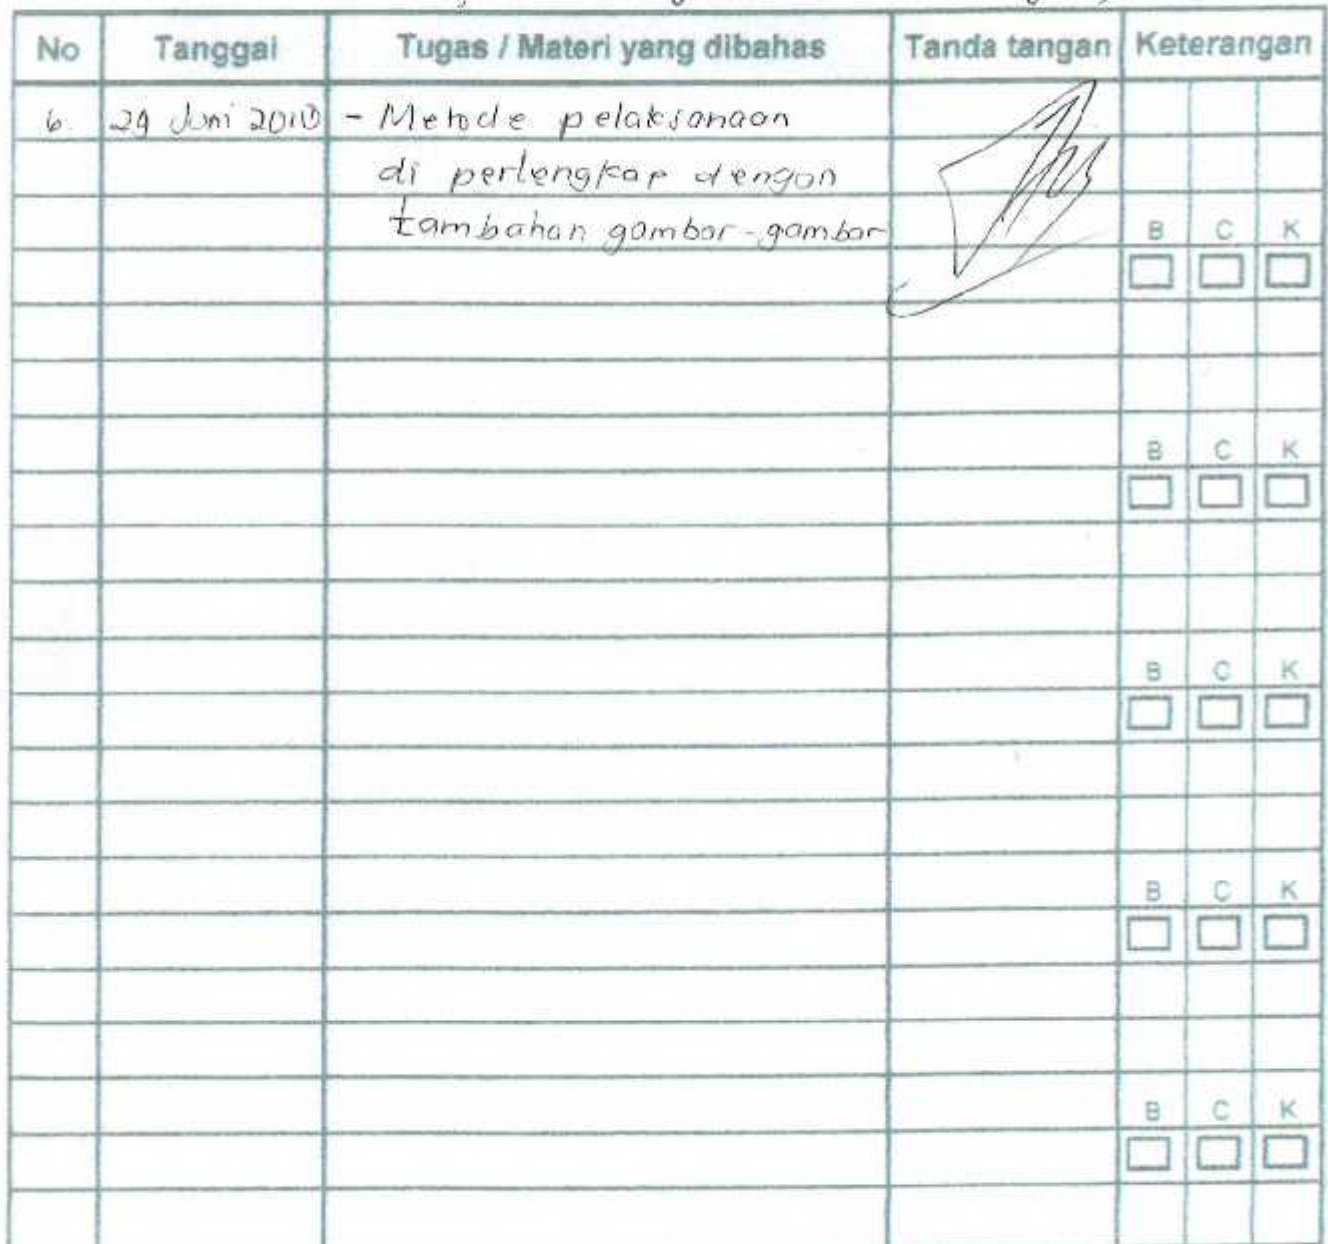 No Tanggal Tugas / Materi yang dibahas Tanda tangan Keterangan
6. 29 Juni - Metode pelaksanaan
di perlengkap dengan
tambahan gambar-gambar
B C K
B C K
B C K
B C K
B C K